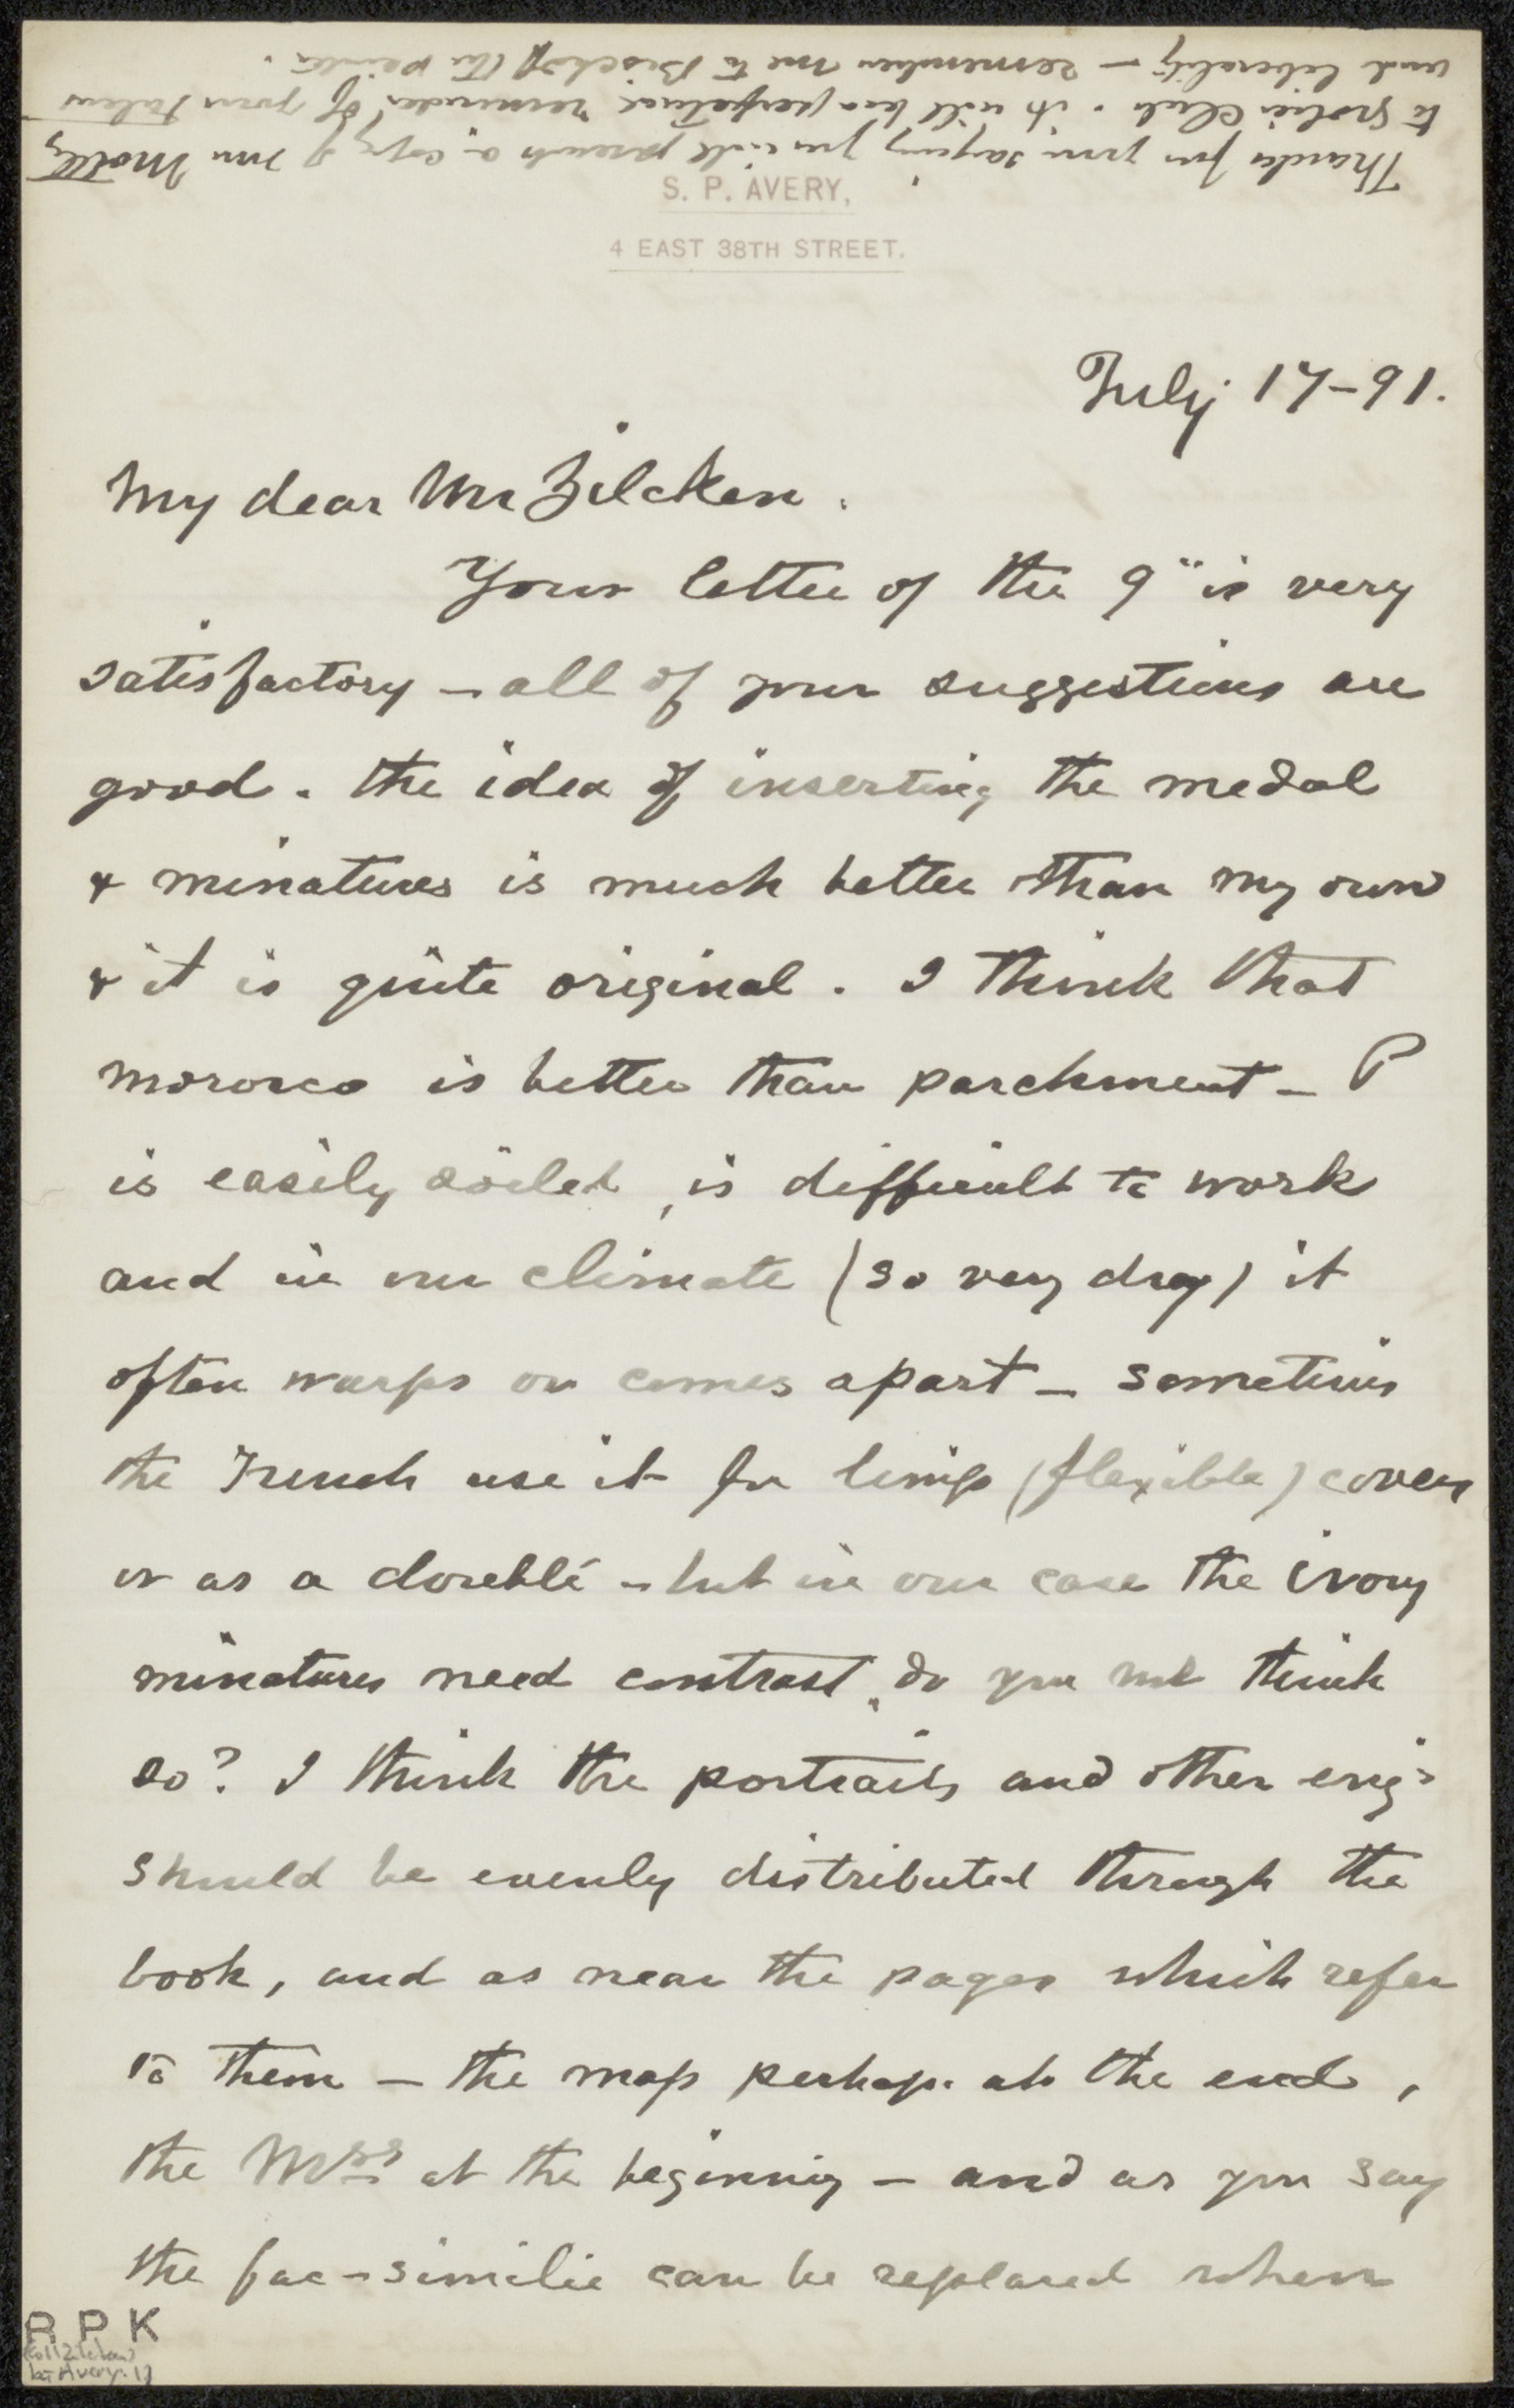 Thanks for your saying you will present a copy of your Motley
to Grolier Club. it will be a perpetual reminder of your talent
and liberality — remember me to Bisschop the painter.
S. P. AVERY,
4 EAST 38TH STREET.
July 17-91.
My dear Mr Zilcken.
Your letter of the 9" is very
satisfactory — all of your suggestions are
good. the idea of inserting the medal
& minatures is much better than my own
& it is quite original. I think that
morocco is better than parchment — P
is easily soiled, is difficult to work
and in our climate (so very dry) it
often warps or comes apart — sometimes
the French use it for limp (flexible) covers
or as a doublé — but in our case the ivory
minatures need contrast, do you not think
so? I think the portraits and other engs
should be evenly distributed through the
book, and as near the pages which refer
to them — the map perhaps at the end,
the Mss at the beginning — and as you say
the fac-similie can be replaced when
R P K
(coll Zilcken)
br Avery. 17